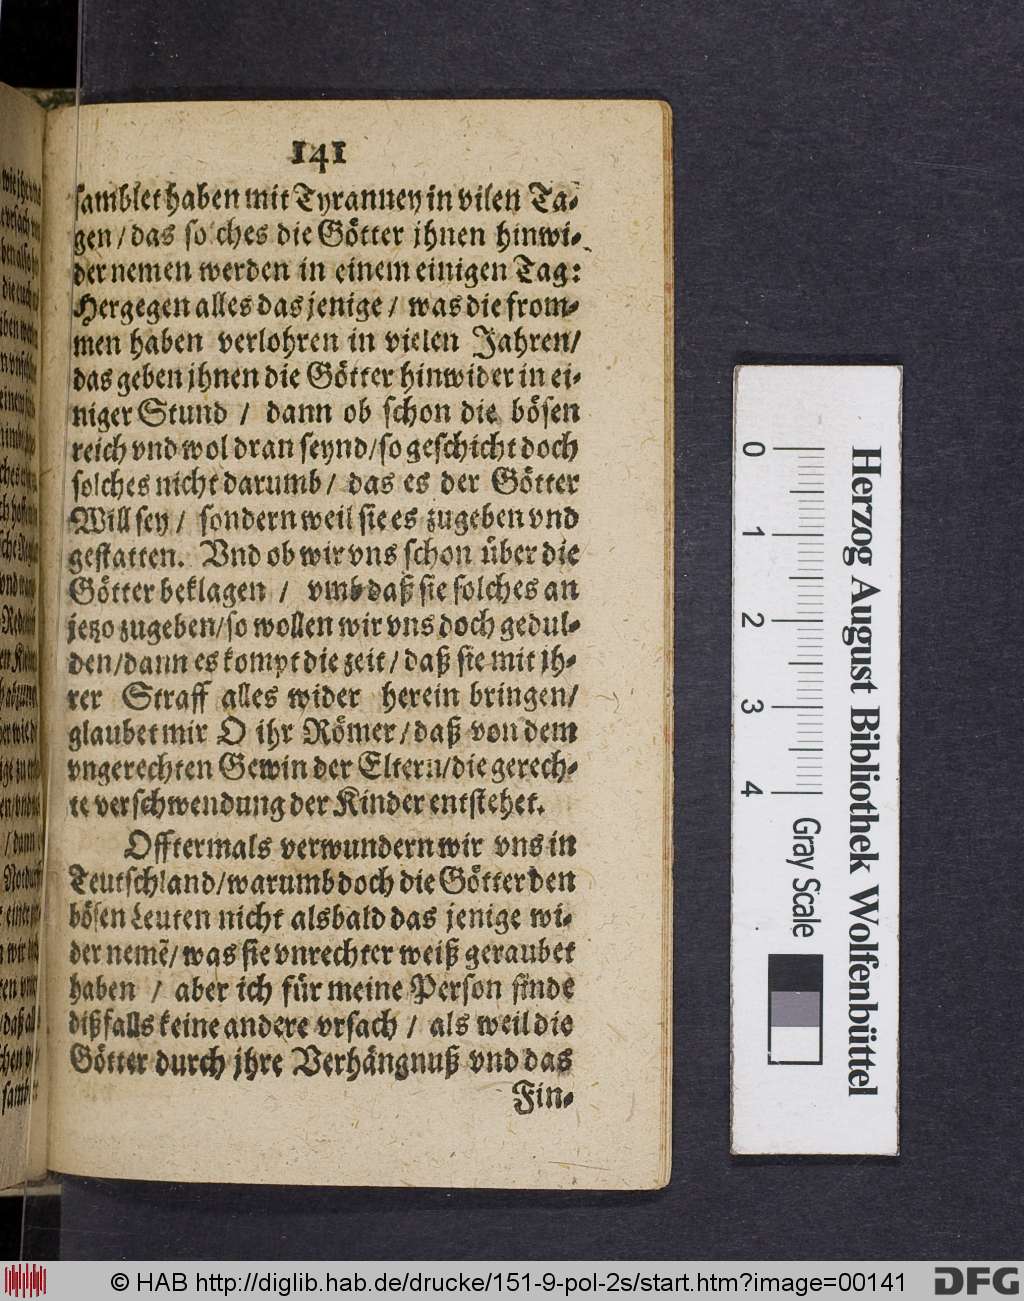 141
samblet haben mit Tyranney in vilen Ta-
gen / das solches die Götter jhnen hinwi-
der nemen werden in einem einigen Tag:
Hergegen alles das jenige / was die from-
men haben verlohren in vielen Jahren/
das geben jhnen die Götter hinwider in ei-
niger Stund / dann ob schon die bösen
reich vnd wol dran seynd/so geschicht doch
solches nicht darumb / das es der Götter
Will sey / sondern weil sie es zugeben vnd
gestatten. Vnd ob wir vns schon über die
Götter beklagen / vmb daß sie solches an
jetzo zugeben/so wollen wir vns doch gedul-
den/dann es kompt die zeit / daß sie mit jh-
rer Straff alles wider herein bringen/
glaubet mir O ihr Römer / daß von dem
vngerechten Gewin der Eltern/die gerech-
te verschwendung der Kinder entstehet.
Offtermals verwundern wir vns in
Teutschland/warumb doch die Götter den
bösen Leuten nicht alsbald das jenige wi-
der nemẽ/ was sie vnrechter weiß geraubet
haben / aber ich für meine Person finde
dißfalls keine andere vrsach / als weil die
Götter durch jhre Verhängnuß vnd das
Fin-
Herzog August Bibliothek Wolfenbüttel
0 1 2 3 4
Gray Scale
© HAB http://diglib.hab.de/drucke/151-9-pol-2s/start.htm?image=00141
DFG